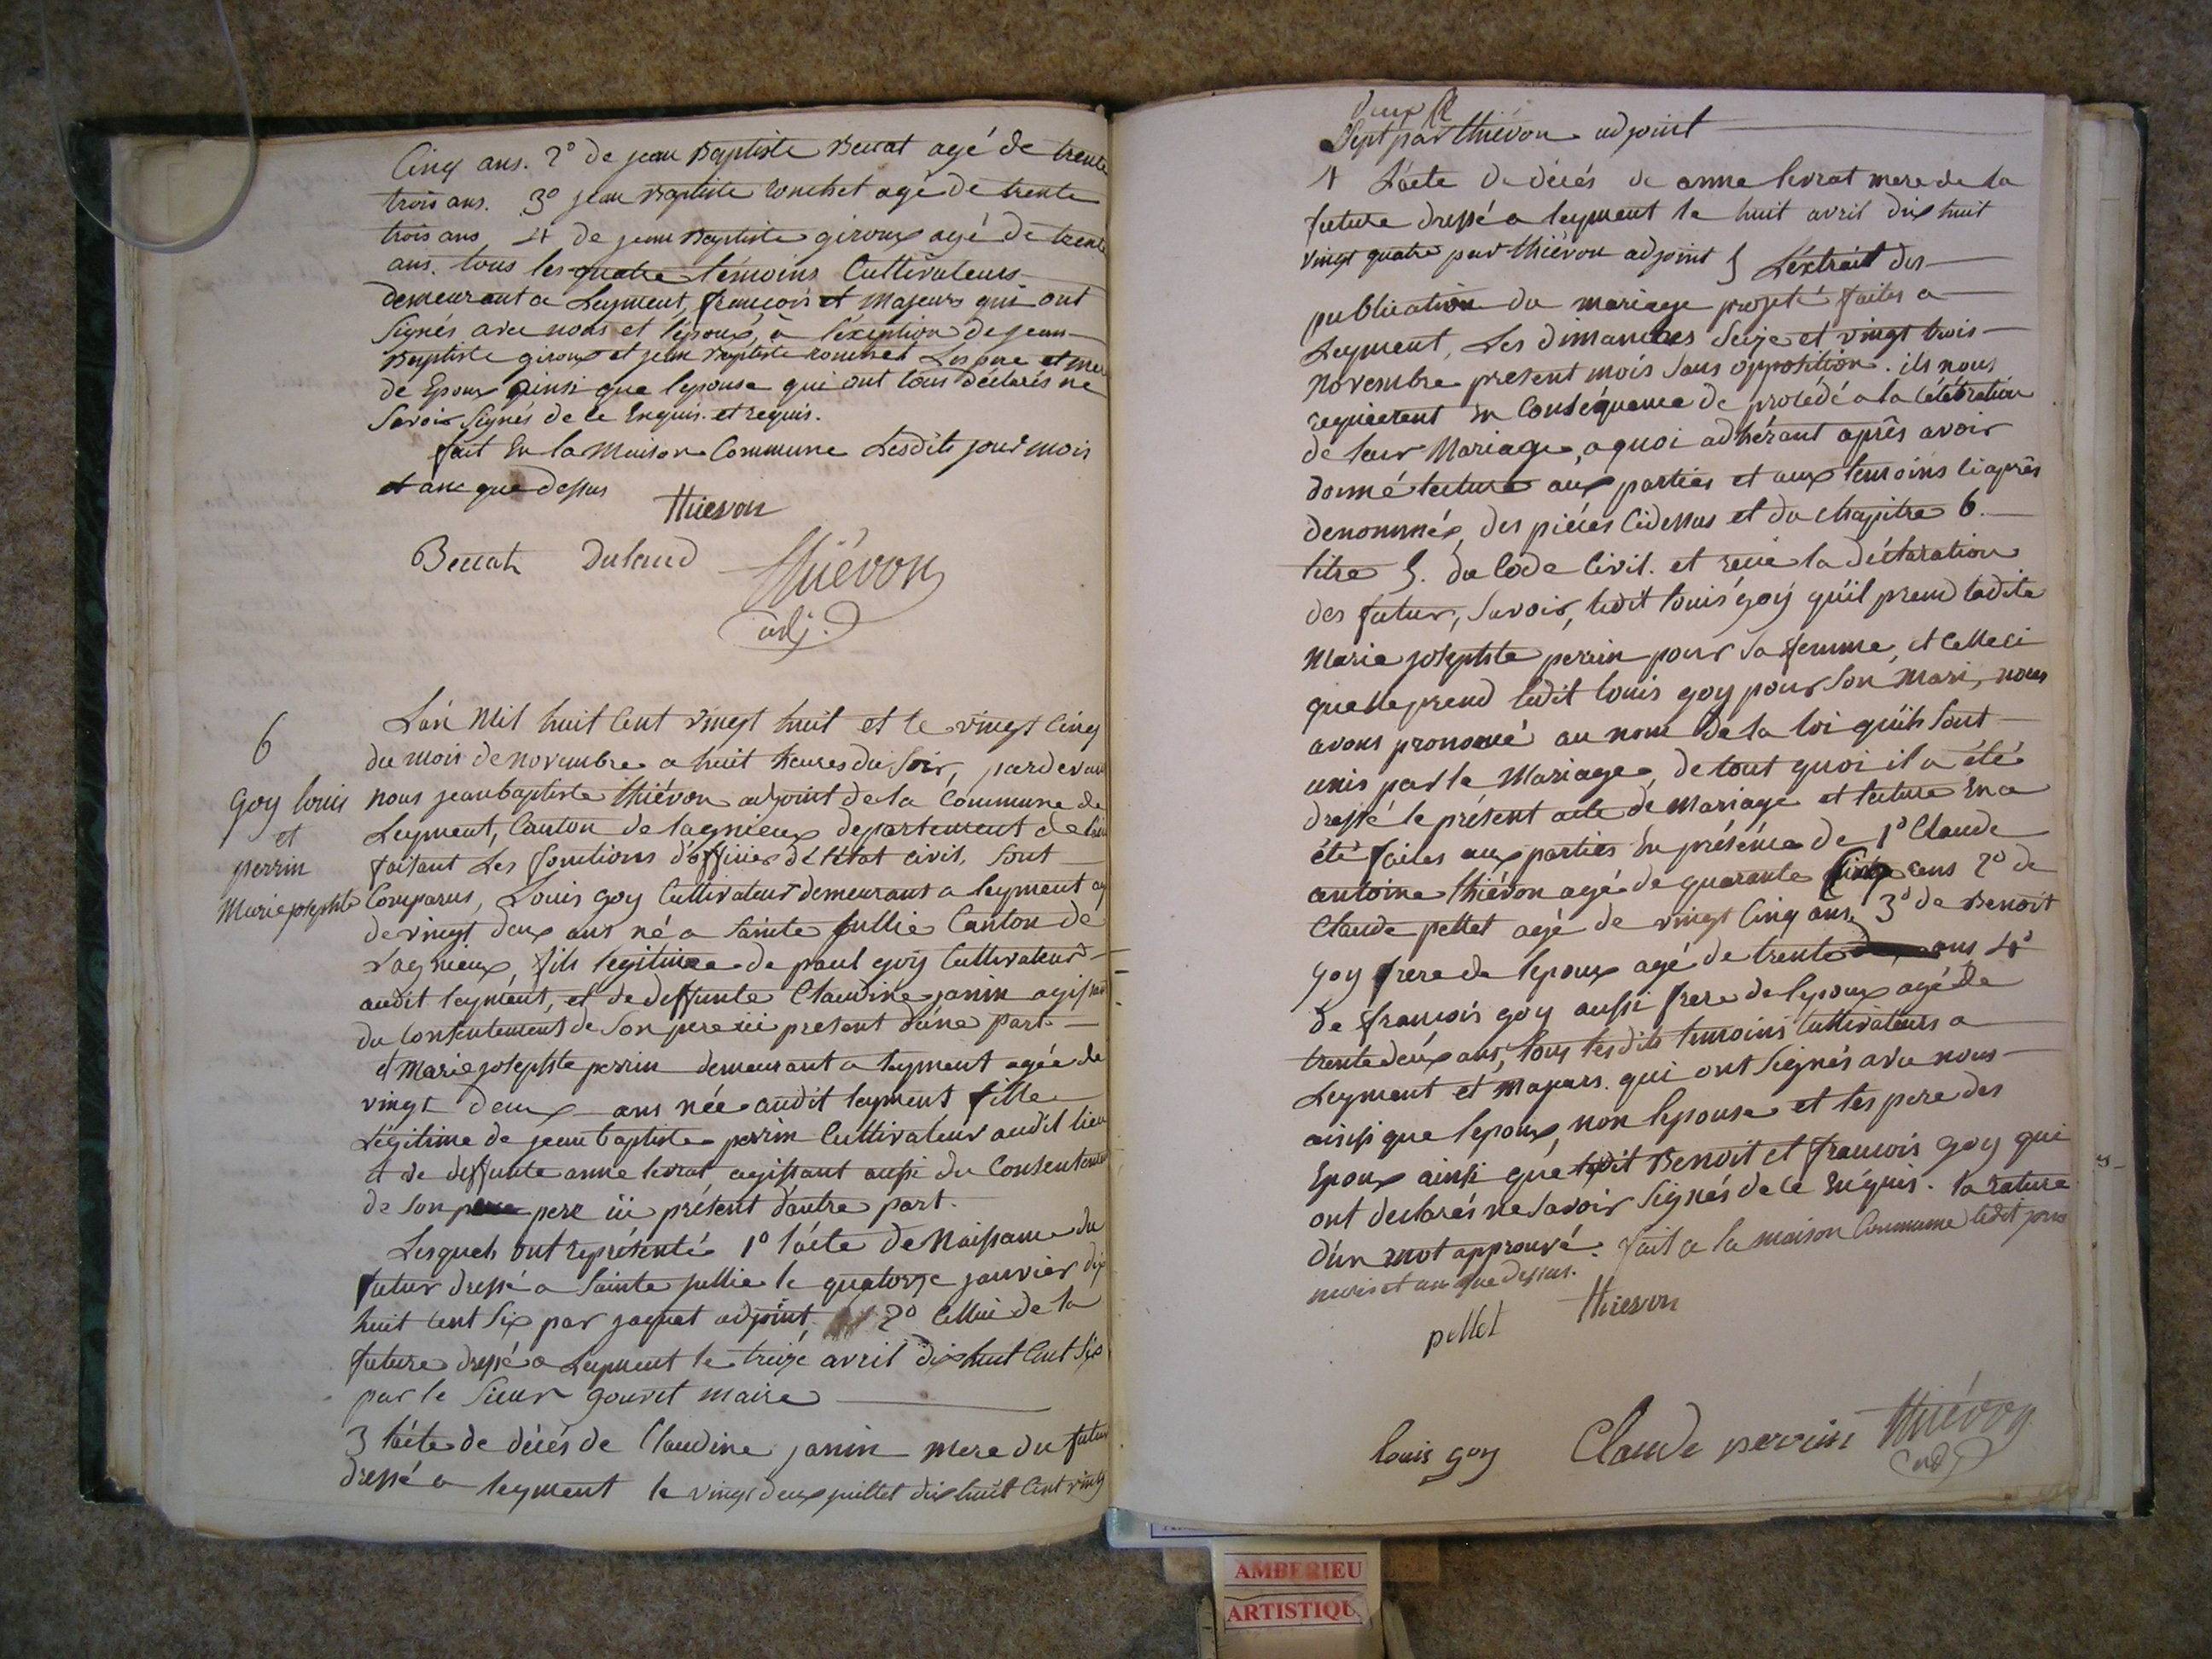 Cinq ans. 2° de jean Baptiste Beccat agé de trente
trois ans. 3° jean Baptiste ronchet agé de trente
trois ans 4 de jean Baptiste giroux agé de trente
ans. tous les quatre témoins Cultivateurs
demeurant a Leyment, françois et Majeurs qui ont
signés avec nous et l'époux, à l'exeption de jean
Baptiste giroux et jean Baptiste ronchet Les pere et mere
de Epoux ainsi que lepouse qui ont tous déclarés ne
Savoir Signés de ce Enquis. et requis.
fait En la Maison Commune Lesdits jour mois
et an que dessus
Thievon
Beccat Dulaud Thiévon
adj.
6
Goy louis
et
perrin
Marie josephte
L'an Mil huit Cent vingt huit et le vingt Cinq
du mois de novembre a huit heures du Soir, pardevant
nous jean baptiste thiévon adjoint de la Commune de
Leyment, Canton de lagnieux departement de l'ain
faisant Les fonctions d'officier de l'état civil, Sont
Comparus, Louis goy Cultivateur demeurant a leyment agé
de vingt deux ans né a Sainte jullie Canton de
Lagnieux, fils legitime de paul goy Cultivateur
audit leyment, et de deffunte Claudine janin agissant
du Consentement de Son pere ici present d'une part.
et Marie josephte perrin demeurant a leyment agée de
vingt deux ans née audit leyment fille
Légitime de jean baptiste perrin Cultivateur audit lieu
et de deffunte anne levrat, agissant aussi du Consentement
de Son pere ici présent d'autre part.
Lesquels ont représenté 1° l'acte de Naissance du
futur dressé a Sainte jullie le quatorze janvier dix
huit cent Six par jaquet adjoint 2° Cellui de la
future dressé a Leyment le treize avril dix huit Cent Six
par le Sieur gouvet maire
3 l'acte de décés de Claudine janin mere du futur
dressé a leyment le vingt deux juillet dix huit Cent vingt
Sept par thiévon adjoint
4 L'acte de décés de anne levrat mere de la
future dressé a leyment le huit avril dix huit
vingt quatre par thiévon adjoint 5 L'extrait des
publication du mariage projeté faites a
Leyment, Les dimanches Seize et vingt trois
novembre present mois Sans opposition. ils nous
requierent En Conséquence de procédé a la Célébration
de leur Mariage, a quoi adhérant après avoir
donné lecture aux parties et aux temoins ci après
denommés, des piéces Cidessus et du chapitre 6.
titre 5. du Code Civil. et reçue la déclaration
des futur, Savoir, ledit louis goy qu'il prend ladite
Marie josephte perrin pour Sa femme, et Celle ci
quelle prend ledit louis goy pour Son Mari, nous
avons prononcé au nom de la loi qu'ils Sont
unis par le Mariage, de tout quoi il a été
dressé le présent acte de Mariage et lecture En a
été faites aux parties En présence de 1° Claude
antoine thiévon agé de quarante Cinq ans 2° de
Claude pellet agé de vingt Cinq ans, 3° de Benoit
goy frere de lepoux agé de trente ans 4°
de françois goy aussi frere de lepoux agé de
trente deux ans, tous lesdits temoins Cultivateurs a
Leyment et Majeurs. qui ont Signés avec nous
ainsi que lepoux, non lepouse et les pere des
Epoux ainsi que ledit Benoit et françois goy qui
ont declarés ne Savoir Signés de ce Enquis. la rature
d'un mot approuvé. fait a la maison Commune ledit jour
mois et an que dessus.
pellet Thievon
louis goy Claude perrin Thiévon
adj
AMBERIEU
ARTISTIQU